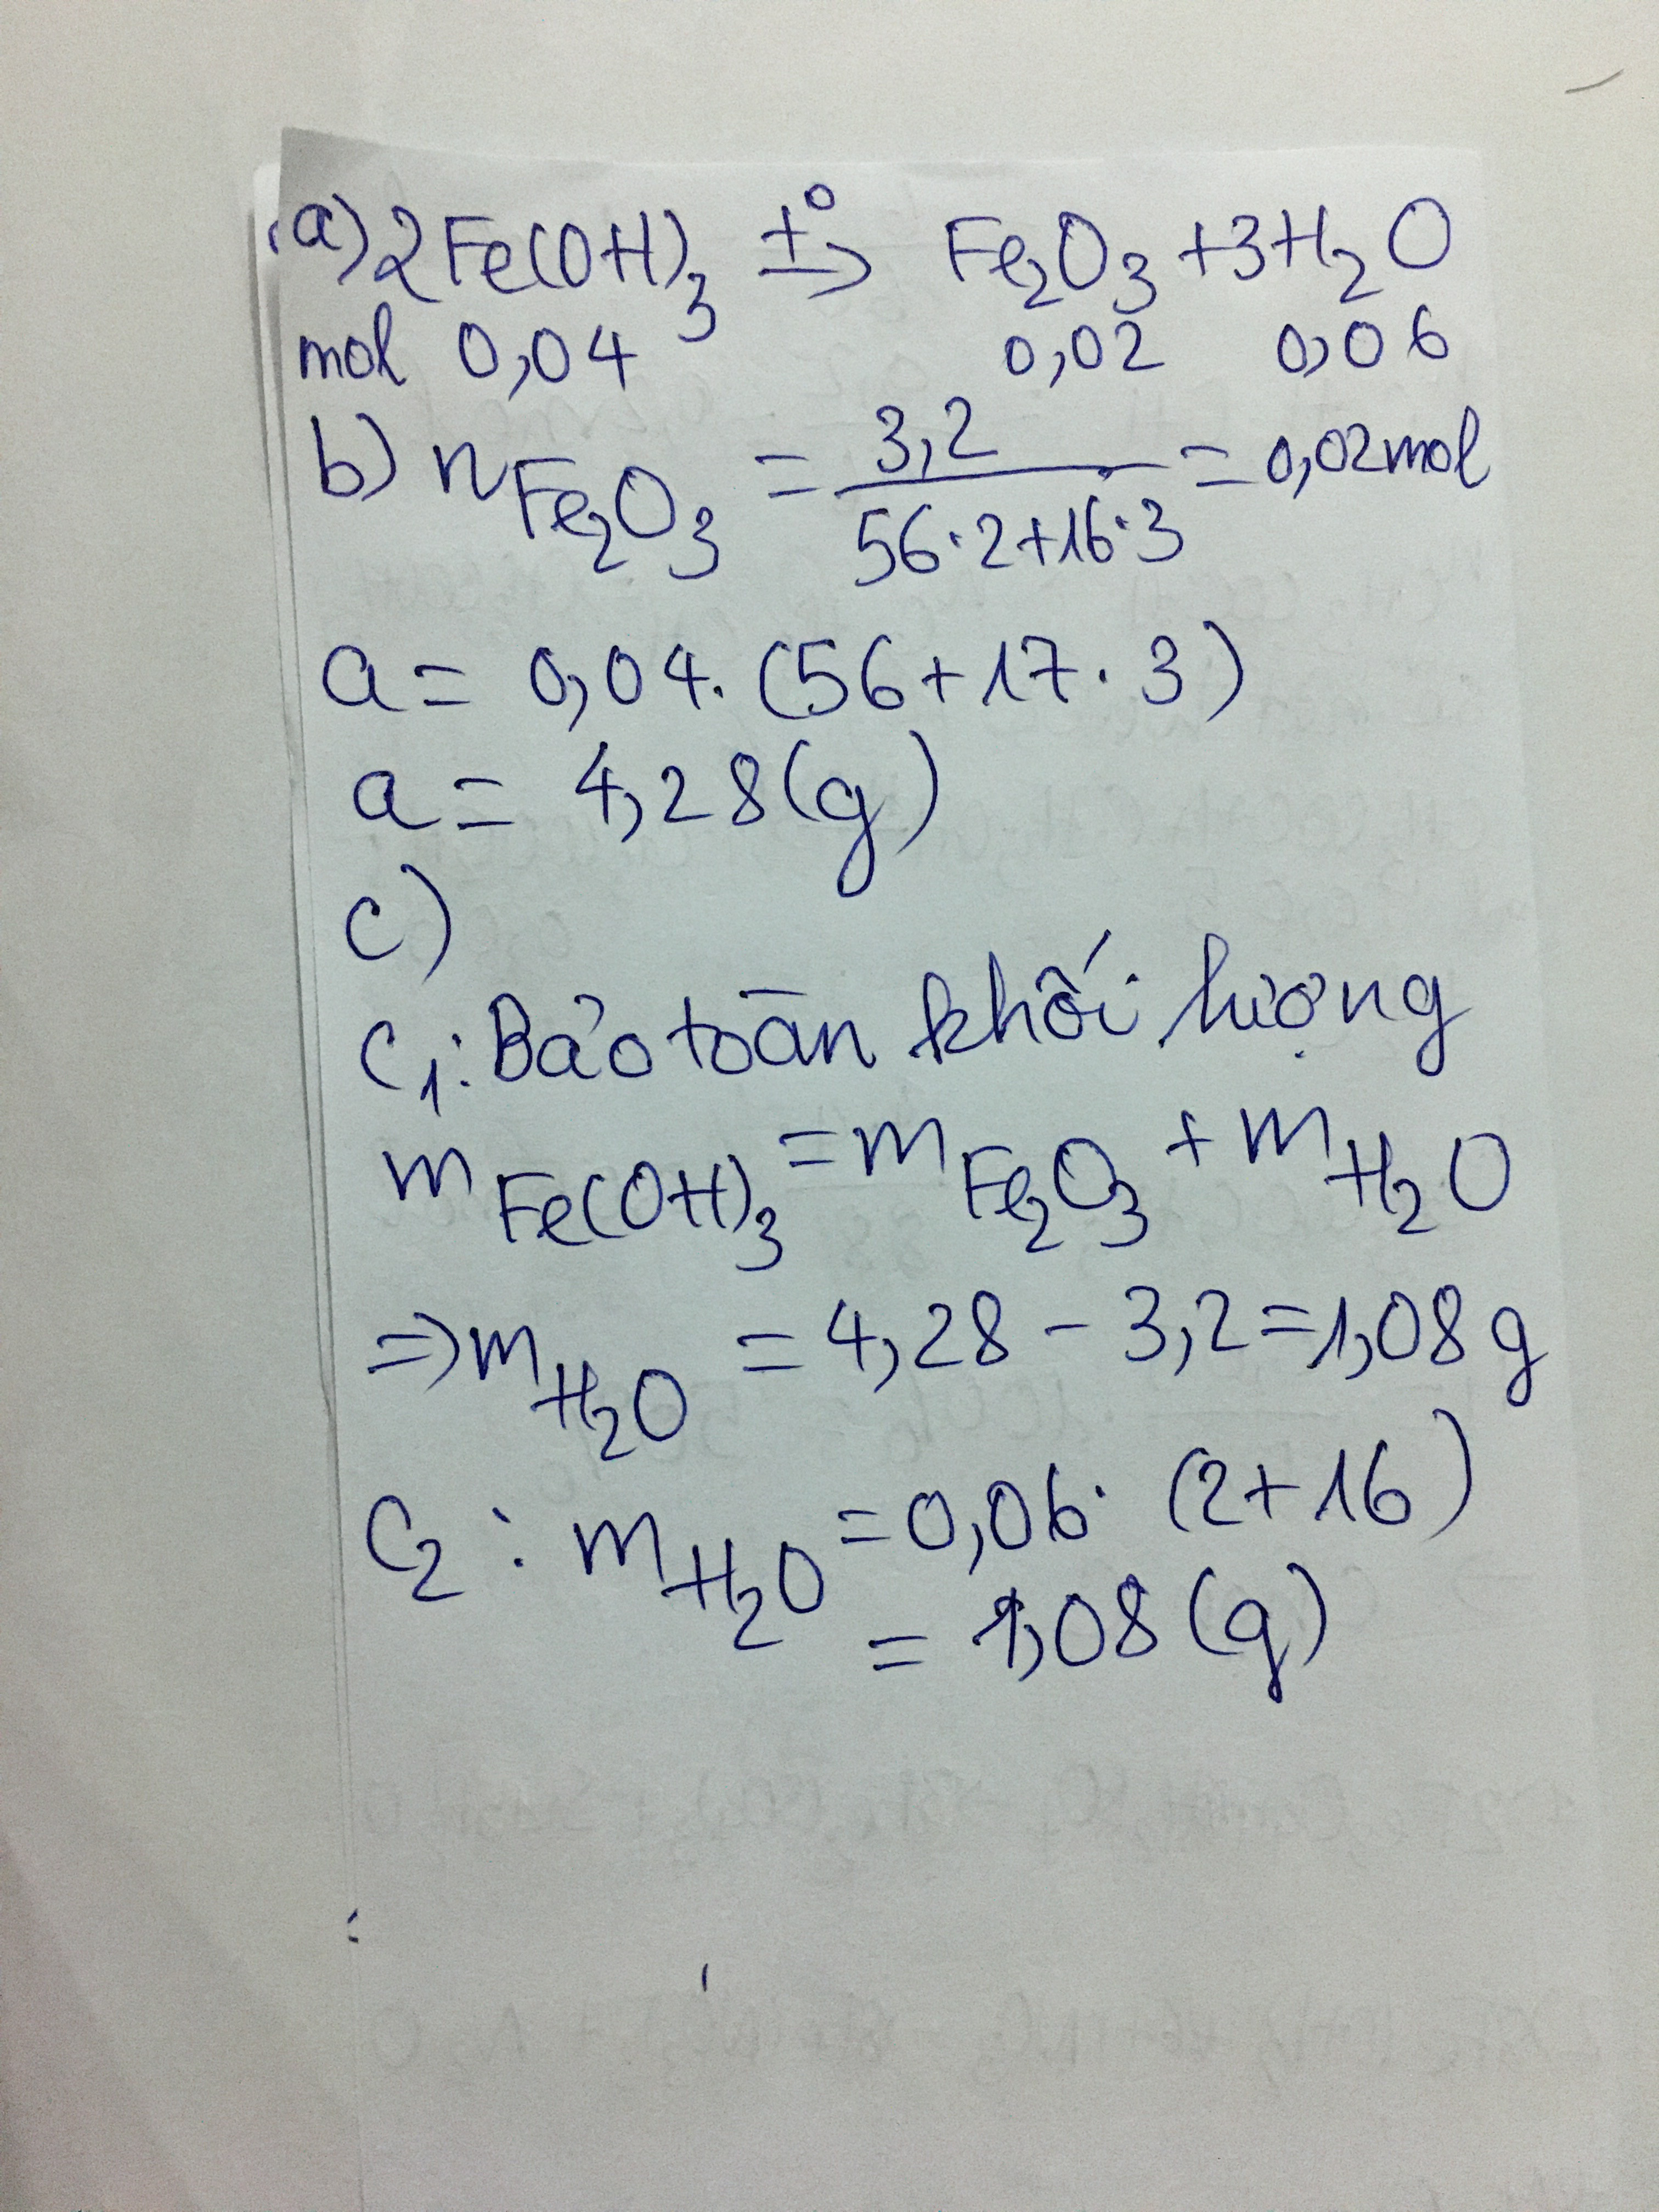 a) 2Fe(OH)₃ t° → Fe₂O₃ + 3H₂O
mol 0,04 0,02 0,06
b) n Fe₂O₃ = 3,2 / 56·2+16·3 = 0,02mol
a = 0,04. (56+17.3)
a = 4,28 (g)
c)
C₁: Bảo toàn khối lượng
m Fe(OH)₃ = m Fe₂O₃ + m H₂O
=> m H₂O = 4,28 - 3,2 = 1,08g
C₂ : m H₂O = 0,06. (2+16)
= 1,08 (g)